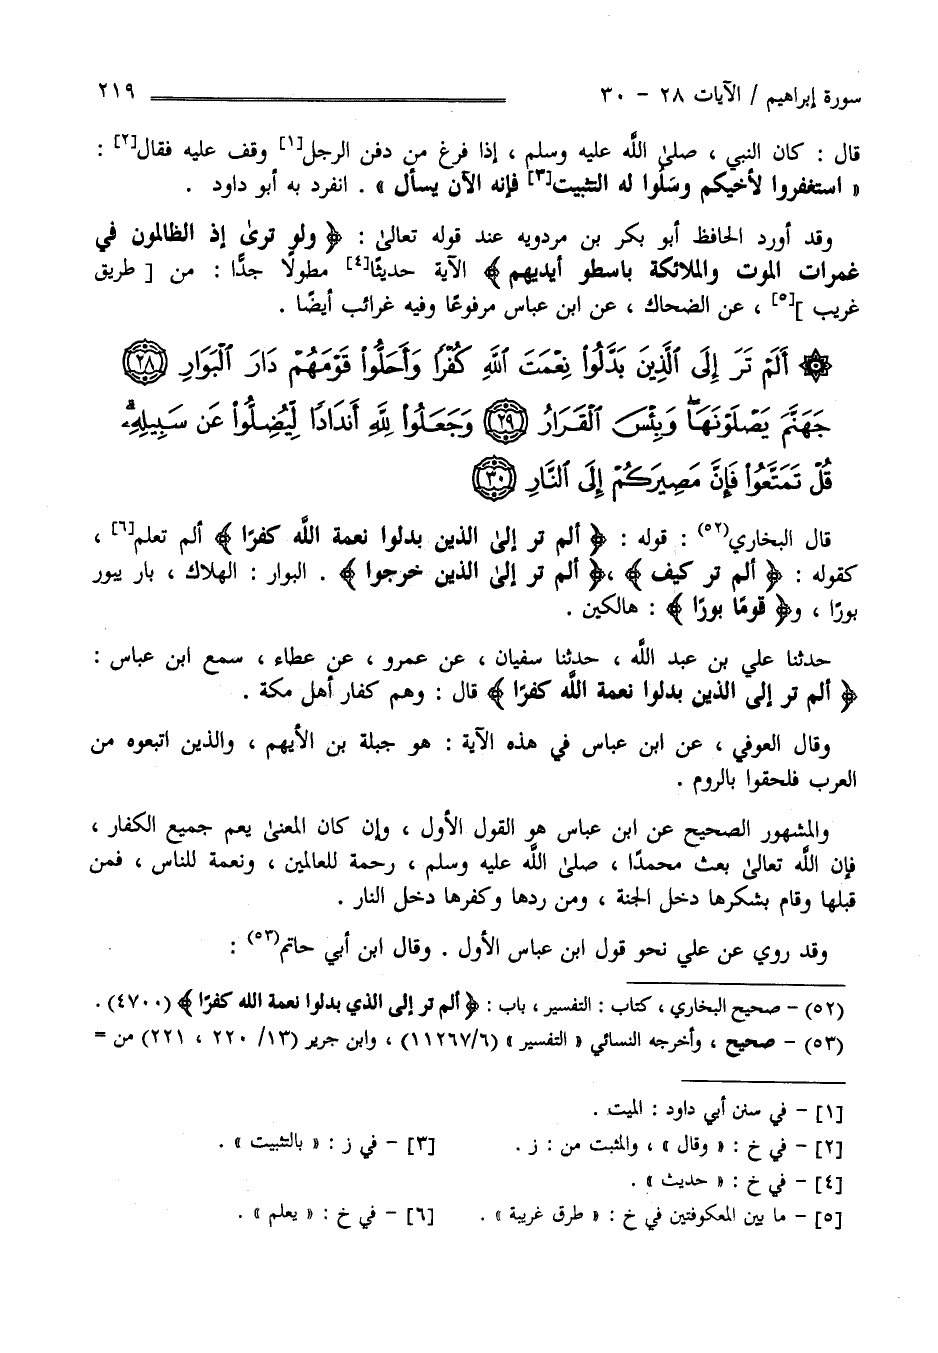 سورة إبراهيم / الآيات ٢٨ - ٣٠ ٢١٩
قال : كان النبي ، صلىٰ اللَّه عليه وسلم ، إذا فرغ من دفن الرجل[١] وقف عليه فقال[٢] :
« استغفروا لأخيكم وسَلُوا له التثبيت[٣] فإنه الآن يسأل » . انفرد به أبو داود .
وقد أورد الحافظ أبو بكر بن مردويه عند قوله تعالىٰ : ﴿ ولو ترىٰ إذ الظالمون في
غمرات الموت والملائكة باسطو أيديهم ﴾ الآية حديثًا[٤] مطولًا جدًّا : من [ طريق
غريب ][٥] ، عن الضحاك ، عن ابن عباس مرفوعًا وفيه غرائب أيضًا .
۞ أَلَمْ تَرَ إِلَى ٱلَّذِينَ بَدَّلُوا۟ نِعْمَتَ ٱللَّهِ كُفْرًا وَأَحَلُّوا۟ قَوْمَهُمْ دَارَ ٱلْبَوَارِ ٢٨
جَهَنَّمَ يَصْلَوْنَهَا ۖ وَبِئْسَ ٱلْقَرَارُ ٢٩ وَجَعَلُوا۟ لِلَّهِ أَندَادًا لِّيُضِلُّوا۟ عَن سَبِيلِهِۦ ۗ
قُلْ تَمَتَّعُوا۟ فَإِنَّ مَصِيرَكُمْ إِلَى ٱلنَّارِ ٣٠
قال البخاري(٥٢) : قوله : ﴿ ألم تر إلىٰ الذين بدلوا نعمة اللَّه كفرًا ﴾ ألم تعلم[٦] ،
كقوله : ﴿ ألم تر كيف ﴾ ،﴿ ألم تر إلىٰ الذين خرجوا ﴾ . البوار : الهلاك ، بار يبور
بورًا ، و﴿ قومًا بورًا ﴾ : هالكين .
حدثنا علي بن عبد اللَّه ، حدثنا سفيان ، عن عمرو ، عن عطاء ، سمع ابن عباس :
﴿ ألم تر إلى الذين بدلوا نعمة اللَّه كفرًا ﴾ قال : وهم كفار أهل مكة .
وقال العوفي ، عن ابن عباس في هذه الآية : هو جبلة بن الأيهم ، والذين اتبعوه من
العرب فلحقوا بالروم .
والمشهور الصحيح عن ابن عباس هو القول الأول ، وإن كان المعنىٰ يعم جميع الكفار ،
فإن اللَّه تعالىٰ بعث محمدًا ، صلىٰ اللَّه عليه وسلم ، رحمة للعالمين ، ونعمة للناس ، فمن
قبلها وقام بشكرها دخل الجنة ، ومن ردها وكفرها دخل النار .
وقد روي عن علي نحو قول ابن عباس الأول . وقال ابن أبي حاتم(٥٣) :
(٥٢) - صحيح البخاري ، كتاب : التفسير ، باب : ﴿ ألم تر إلى الذي بدلوا نعمة الله كفرًا ﴾ (٤٧٠٠) .
(٥٣) - صحيح ، وأخرجه النسائي « التفسير » (١١٢٦٧/٦) ، وابن جرير (١٣/ ٢٢٠ ، ٢٢١) من =
[١] - في سنن أبي داود : الميت .
[٢] - في خ : « وقال » ، والمثبت من : ز . [٣] - في ز : « بالتثبيت » .
[٤] - في خ : « حديث » .
[٥] - ما بين المعكوفتين في خ : « طرق غريبة » . [٦] - في خ : « يعلم » .